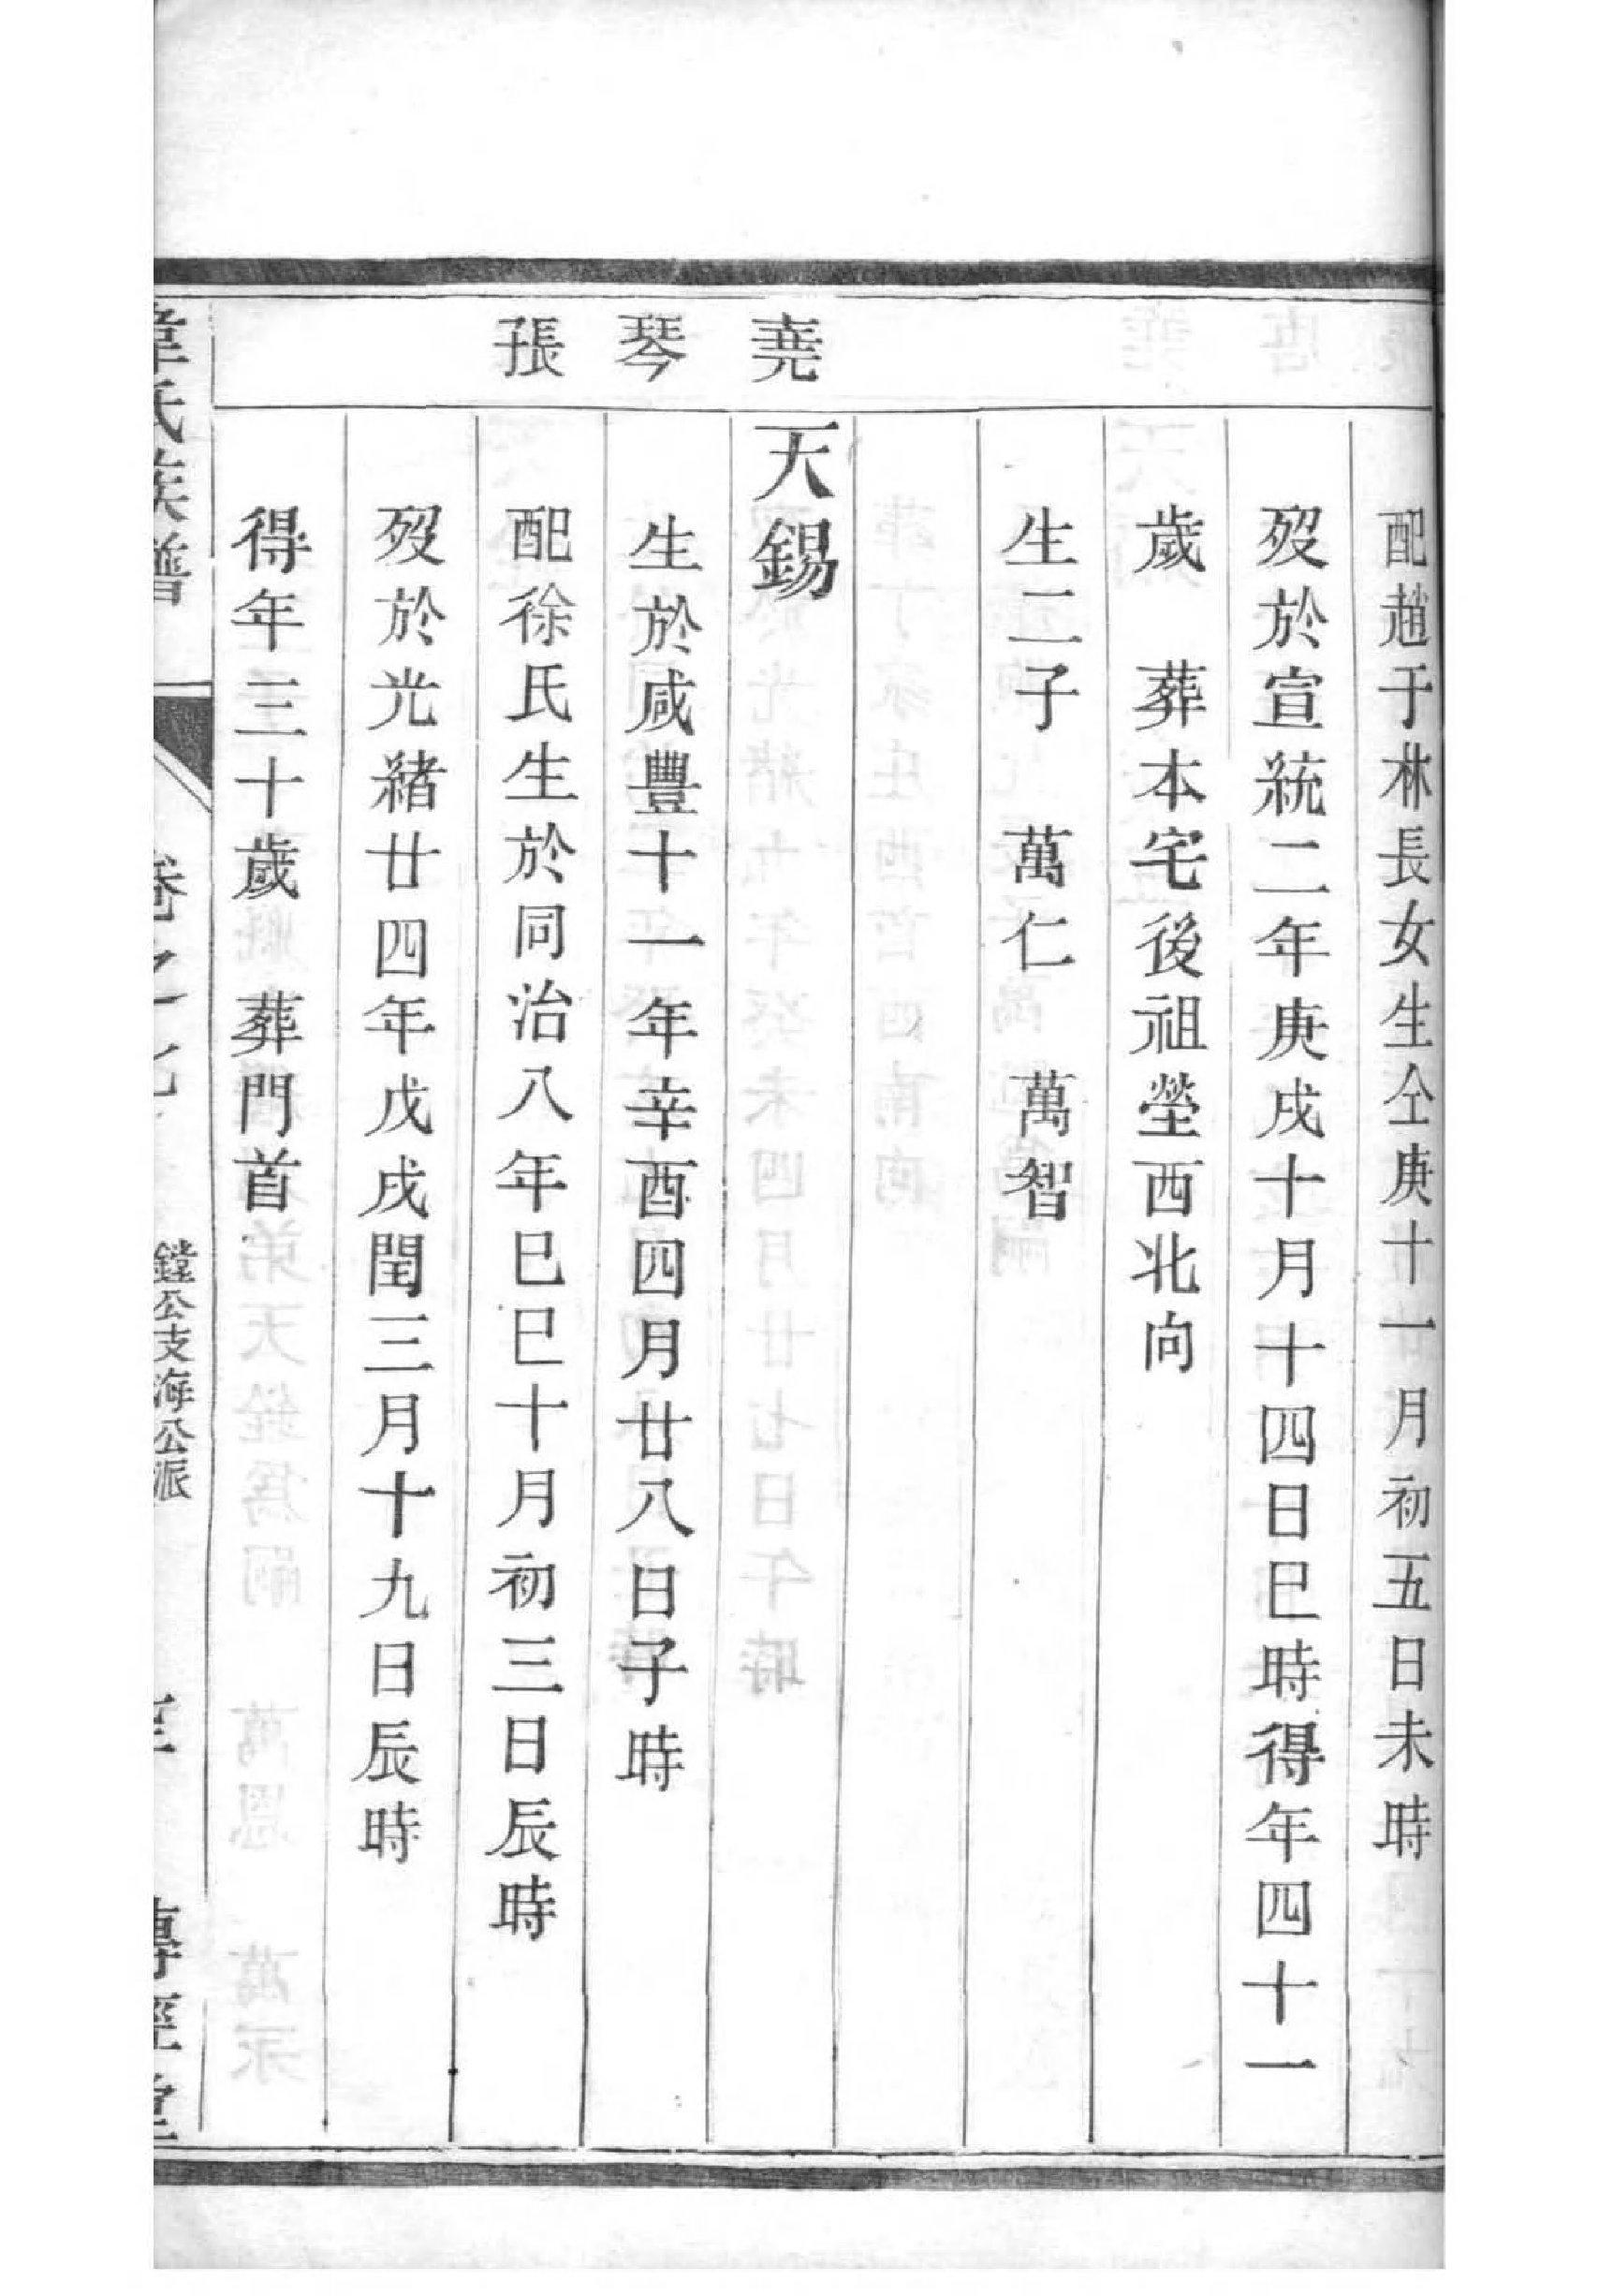 配趙于林長女生仝庚十一月初五日未時
歿於宣統二年庚戌十月十四日巳時得年四十一
歲　葬本宅後祖塋西北向
生二子　萬仁　萬智
堯琴張
天錫
生於咸豐十一年辛酉四月廿八日子時
配徐氏生於同治八年巳巳十月初三日辰時
歿於光緒廿四年戊戌閏三月十九日辰時
得年三十歲　葬門首
韋氏族譜
卷之
鏜公支海公派
傳經堂